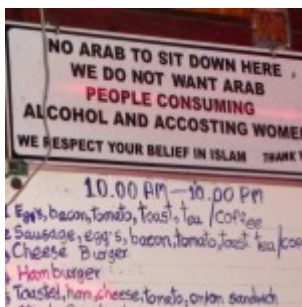 NO ARAB TO SIT DOWN HERE
WE DO NOT WANT ARAB
PEOPLE CONSUMING
ALCOHOL AND ACCOSTING WOME
WE RESPECT YOUR BELIEF IN ISLAM THANK Y
10.00 AM—10.00 PM
Egg's, bacon, tomato, toast, Tea / Coffee
Sausage, egg's, bacon, tomato, toast tea / cof
Cheese Burger
Hamburger
Toasted, ham, cheese, tomato, onion sandwich